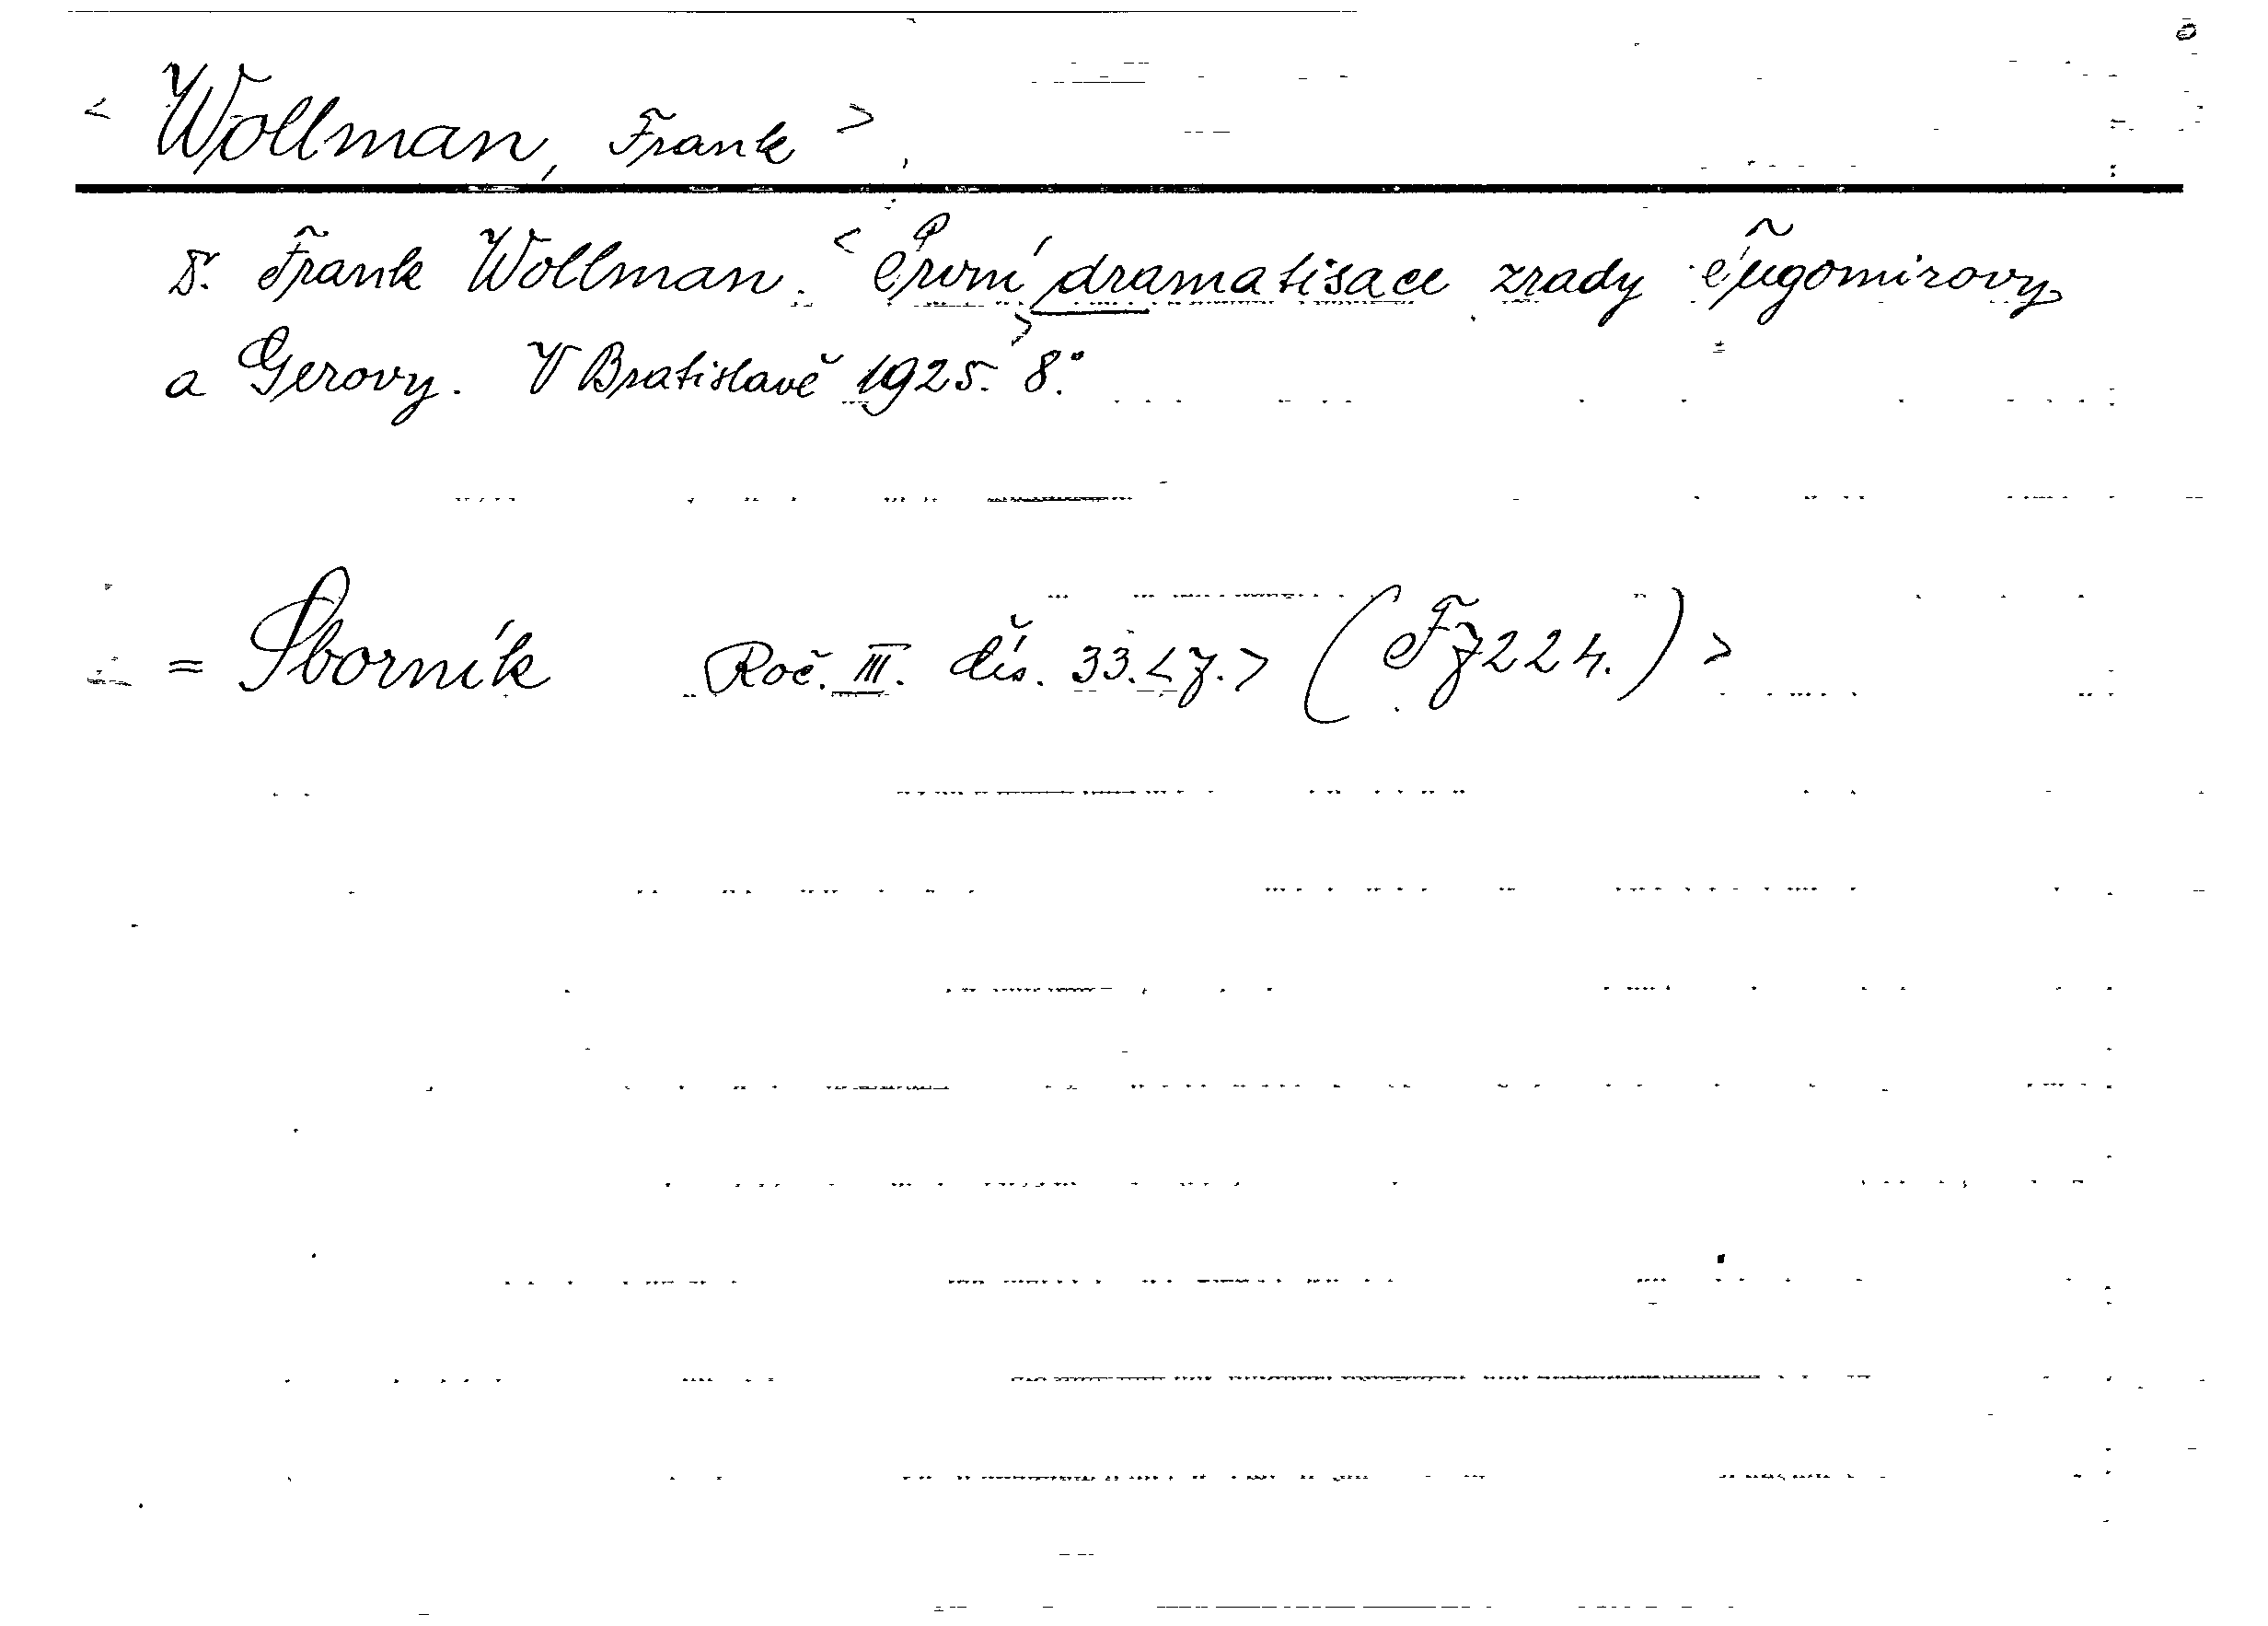 < Wollman, Frank >
Dr. Frank Wollman. < První dramatisace zrady Tugomirovy
a Gerovy. > V Bratislavě 1925. 8.°
= Sborník Roč. III. čís. 33.<7.> (Ff 224.) >